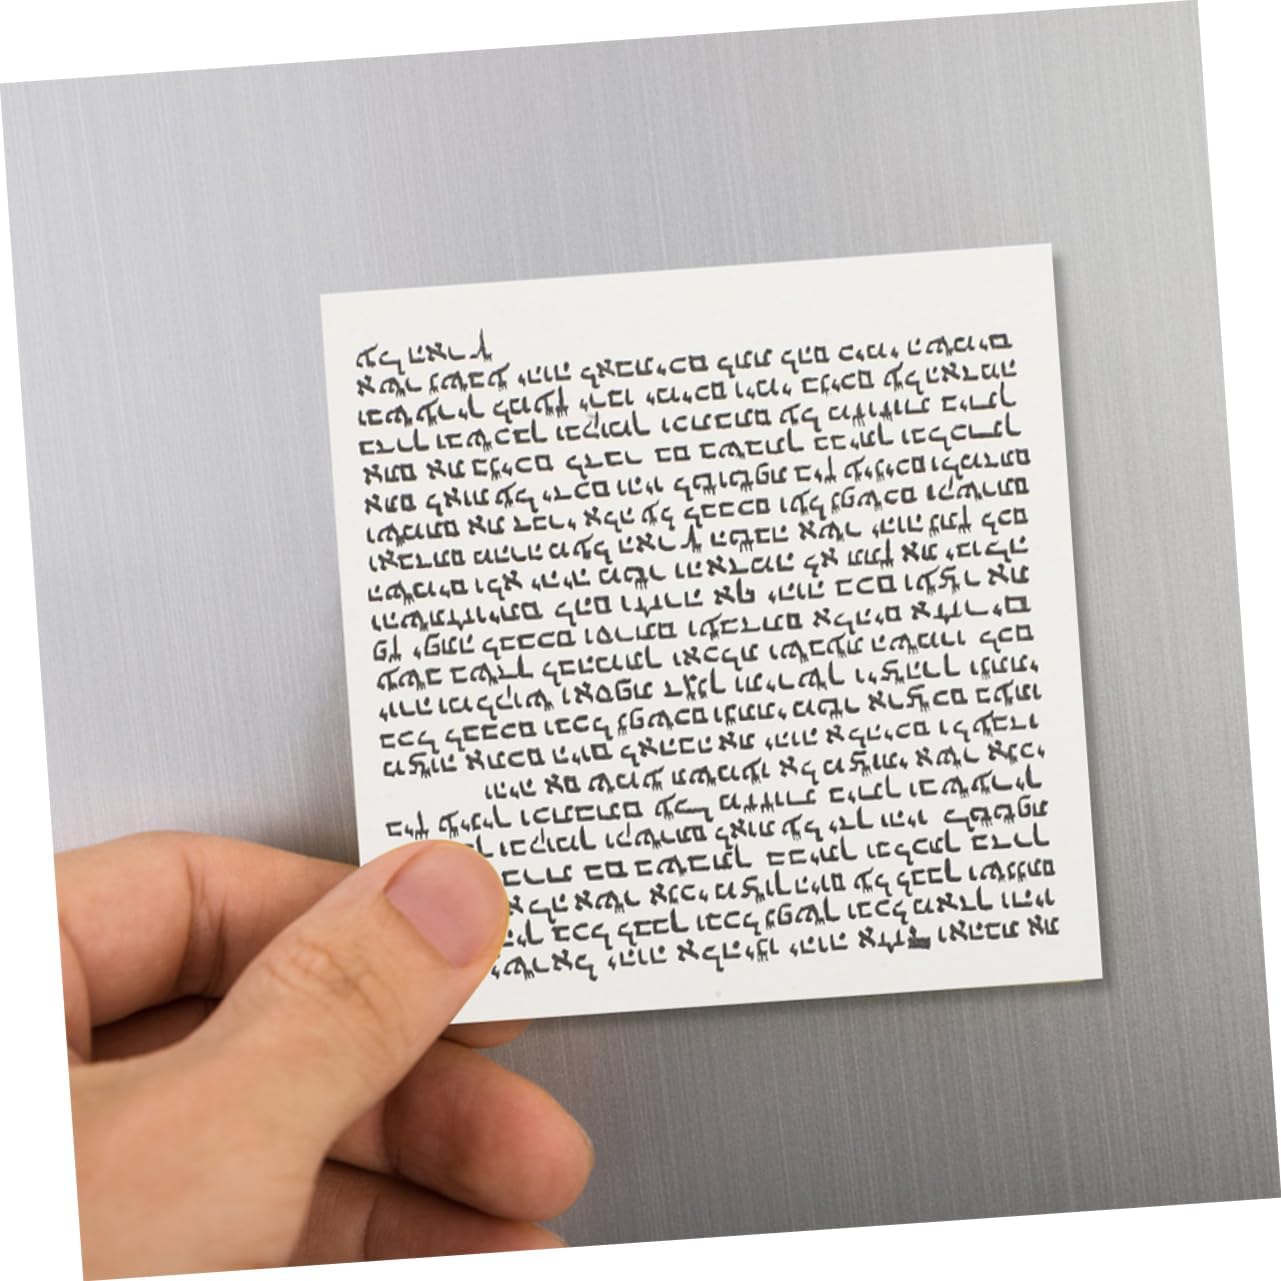 ישראל יהוה אלהינו יהוה אחד ואהבת את
בכל לבבך ובכל נפשך ובכל מאדך והיו
אשר אנכי מצוך היום על לבבך ושננתם
ודברת בם בשבתך בביתך ובלכתך בדרך
ובקומך וקשרתם לאות על ידך והיו לטטפת
בין עיניך וכתבתם על מזזות ביתך ובשעריך
והיה אם שמע תשמעו אל מצותי אשר אנכי
מצוה אתכם היום לאהבה את יהוה אלהיכם ולעבדו
בכל לבבכם ובכל נפשכם ונתתי מטר ארצכם בעתו
יורה ומלקוש ואספת דגנך ותירשך ויצהרך ונתתי
עשב בשדך לבהמתך ואכלת ושבעת השמרו לכם
פן יפתה לבבכם וסרתם ועבדתם אלהים אחרים
והשתחויתם להם וחרה אף יהוה בכם ועצר את
השמים ולא יהיה מטר והאדמה לא תתן את יבולה
ואבדתם מהרה מעל הארץ הטבה אשר יהוה נתן לכם
ושמתם את דברי אלה על לבבכם ועל נפשכם וקשרתם
אתם לאות על ידכם והיו לטוטפת בין עיניכם ולמדתם
אתם את בניכם לדבר בם בשבתך בביתך ובלכתך
בדרך ובשכבך ובקומך וכתבתם על מזוזות ביתך
ובשעריך למען ירבו ימיכם וימי בניכם על האדמה
אשר נשבע יהוה לאבתיכם לתת להם כימי השמים
על הארץ